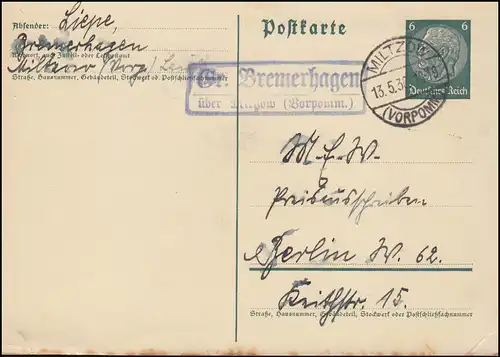 Absender: Liepe,
Bremerhagen
Wohnort, auch Zustell- oder Leitpostamt
Miltzow (Vorp)
Straße, Hausnummer, Gebäudeteil, Stockwerk od. Postschließfachnummer
Postkarte
Gr. Bremerhagen
über Miltzow (Vorpomm.)
MILTZOW
13.5.3
(VORPOMM
6 6
Deutsches Reich
M. E. W.
Preisausschreiben
Berlin W. 62.
Keithstr. 15.
Straße, Hausnummer, Gebäudeteil, Stockwerk oder Postschließfachnummer